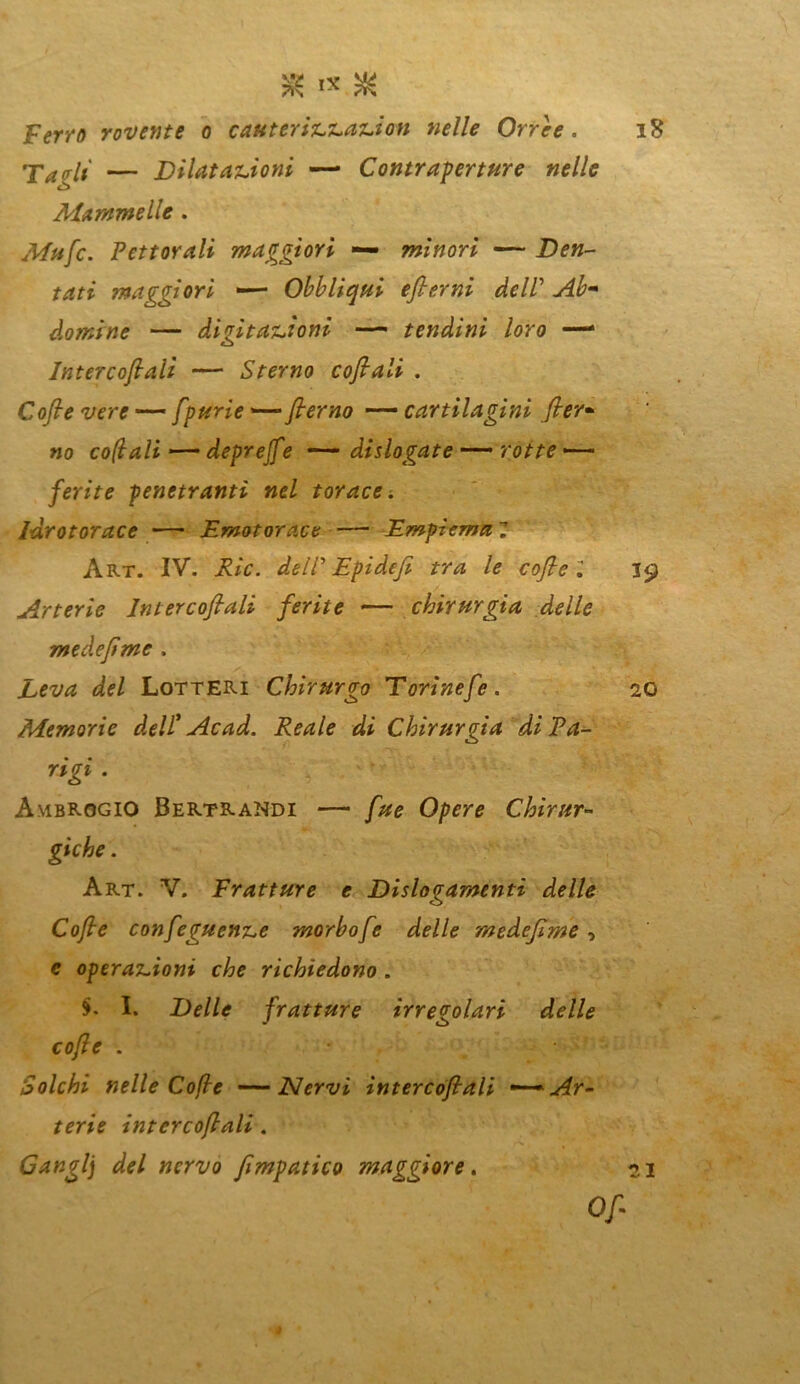 ※ IX ※
Ferro rovente o cauterizzazion nelle Orree. 18
Tagli — Dilatazioni — Contraperture nelle
Mammelle.
Muſc. Pettorali maggiori — minori — Den-
tati maggiori — Obbliqui eſterni dell' Ab-
domine — digitazioni — tendini loro —
Intercoſtali — Sterno coſtali.
Coſte vere — ſpurie — ſterno — cartilagini ſter-
no coſtali — depreſſe — dislogate — rotte —
ferite penetranti nel torace.
Idrotorace — Emotorace — Empiema.
Art. IV. Ric. dell' Epideſi tra le coſte. 19
Arterie Intercoſtali ferite — chirurgia delle
medeſime.
Leva del Lotteri Chirurgo Torineſe. 20
Memorie dell' Acad. Reale di Chirurgia di Pa-
rigi.
Ambrogio Bertrandi — ſue Opere Chirur-
giche.
Art. V. Fratture e Dislogamenti delle
Coſte conſeguenze morboſe delle medeſime,
e operazioni che richiedono.
§. I. Delle fratture irregolari delle
coſte.
Solchi nelle Coſte — Nervi intercoſtali — Ar-
terie intercoſtali.
Ganglj del nervo ſimpatico maggiore. 21
Oſ-